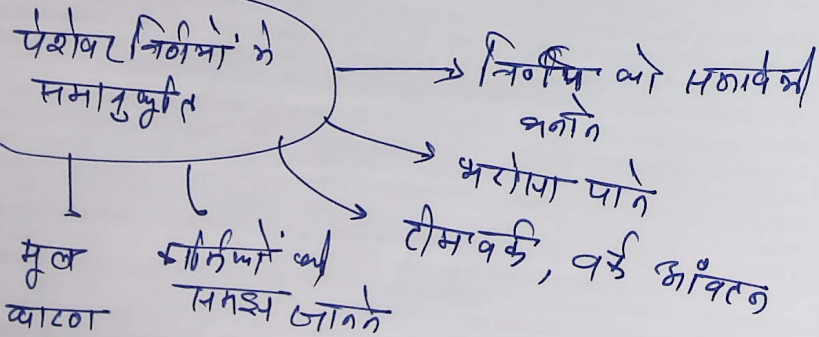 पेशेवर निर्णयों में
समानुभूति
निर्णय को समावेशी
बनाने
भरोसा पाने
टीमवर्क, वर्क आंवटन
मूल
कारण
कार्मिकों की
समझ जानने